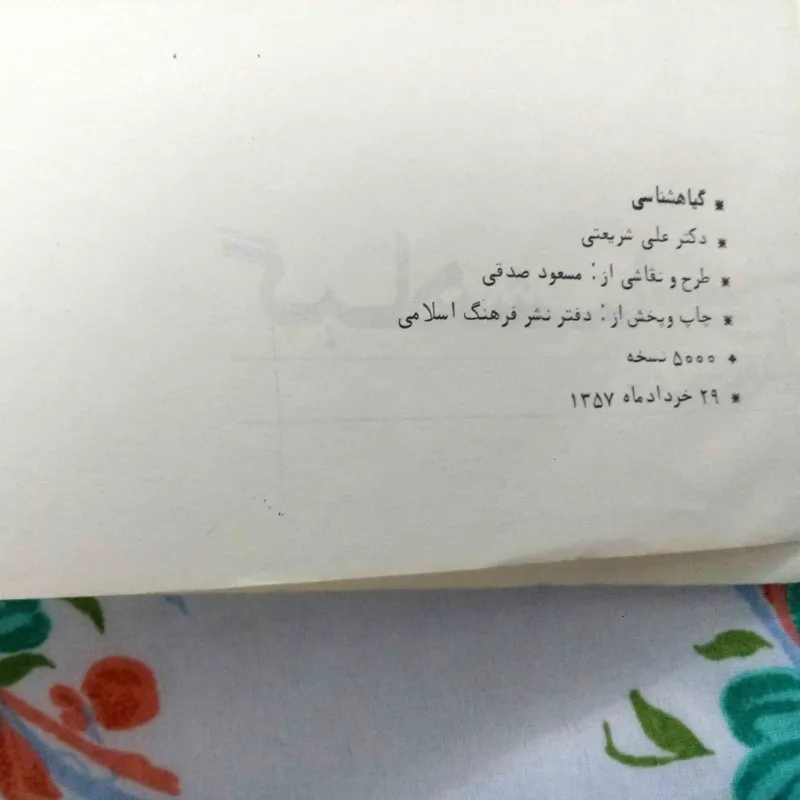 * گیاهشناسی
* دکتر علی شریعتی
* طرح و نقاشی از: مسعود صدقی
* چاپ وپخش از: دفتر نشر فرهنگ اسلامی
* ۵۰۰۰ نسخه
* ۲۹ خردادماه ۱۳۵۷